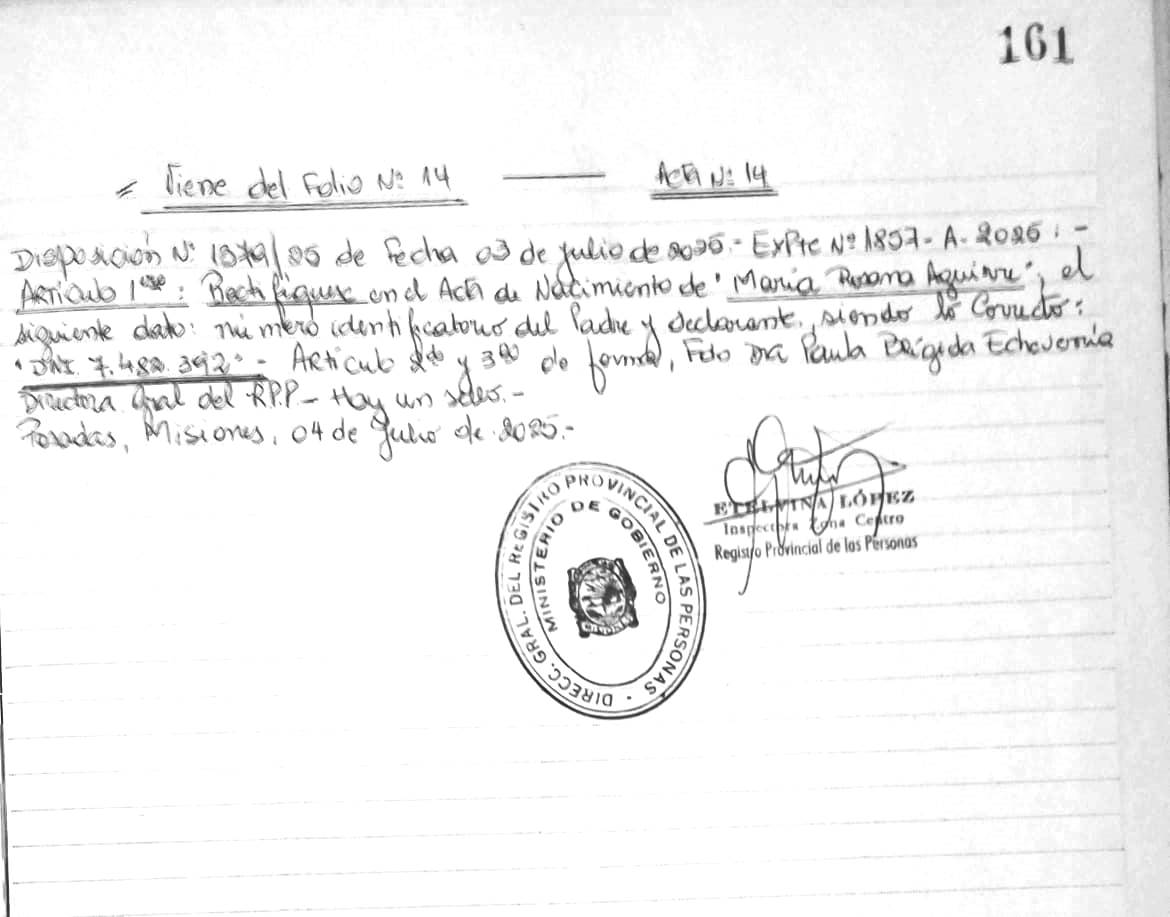 161
= Viene del Folio Nº 14 ——— Acta Nº 14
Disposición Nº 1379/25 de Fecha 03 de Julio de 2025.- Expte Nº 1857- A- 2025: -
Artículo 1ero: Rectifíquese en el Acta de Nacimiento de "María Rosana Aguirre", el
siguiente dato: número identificatorio del Padre y declarante, siendo lo Correcto:
"DNI. 7.482.392".- Artículo 2do y 3ero de forma, Fdo Dra Paula Brígida Echeverría
Directora Gral del R.P.P - Hay un sello.-
Posadas, Misiones, 04 de Julio de 2025.-
ETELVINA LÓPEZ
Inspectora Zona Centro
Registro Provincial de las Personas
DIRECC. GRAL. DEL REGISTRO PROVINCIAL DE LAS PERSONAS -
MINISTERIO DE GOBIERNO
MISIONES